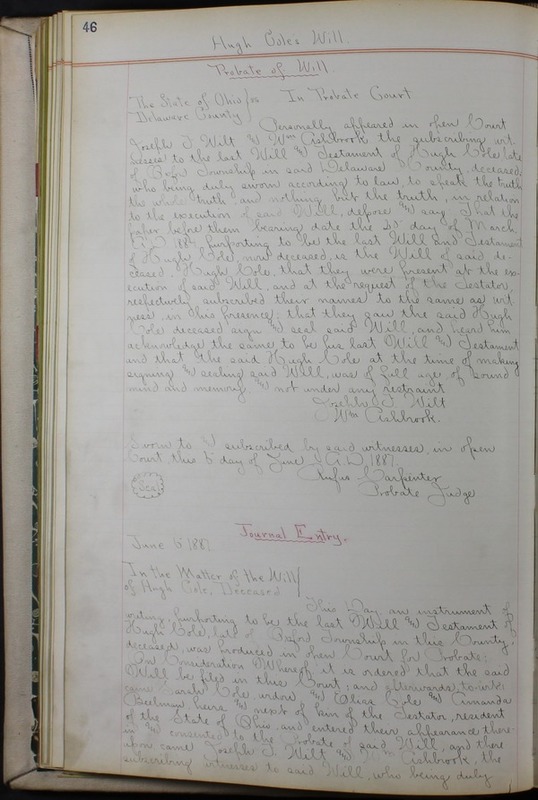 46
Hugh Cole's Will.
Probate of Will.
The State of Ohio } ss In Probate Court
Delaware County
Personally appeared in open Court
Joseph J. Wilt & Wm Ashbrook, the subscribing wit-
nesses to the last Will & Testament of Hugh Cole late
of Township in said Delaware County, deceased,
who being duly sworn according to law, to speak the truth
the whole truth and nothing but the truth, in relation
to the execution of said Will, depose & say That the
paper before them bearing date the day of March
A.D. 1887, purporting to be the last Will and Testament
of Hugh Cole, now deceased, is the Will of said de-
ceased Hugh Cole, that they were present at the ex-
ecution of said Will, and at the request of the Testator,
respectively subscribed their names to the same as wit-
ness, in his presence; that they saw the said Hugh
Cole deceased sign & seal said Will, and heard him
acknowledge the same to be his last Will & Testament
and that the said Hugh Cole at the time of making
signing & sealing said Will, was of full age of sound
mind and memory & not under any restraint
Joseph J. Wilt
Wm Ashbrook.
Sworn to & subscribed by said witnesses, in open
Court, this 6 day of June A.D. 1887
Rufus Carpenter
Seal
Probate Judge
Journal Entry.
June 6 1887
In the Matter of the Will }
of Hugh Cole, Deceased
This Day an instrument of
writing purporting to be the last Will & Testament of
Hugh Cole, late of Township in this County
deceased, was produced in open Court for Probate;
On Consideration Whereof, it is ordered that the said
Will be filed in this Court; and afterwards, to-wit:
came Sarah Cole, widow & Eliza Cole & Amanda
Beelman heirs & next of kin of the Testator, resident
of the State of Ohio, and entered their appearance there-
in & consented to the probate of said Will, and there
upon came Joseph J. Wilt & Wm Ashbrook, the
subscribing witnesses to said Will, who being duly